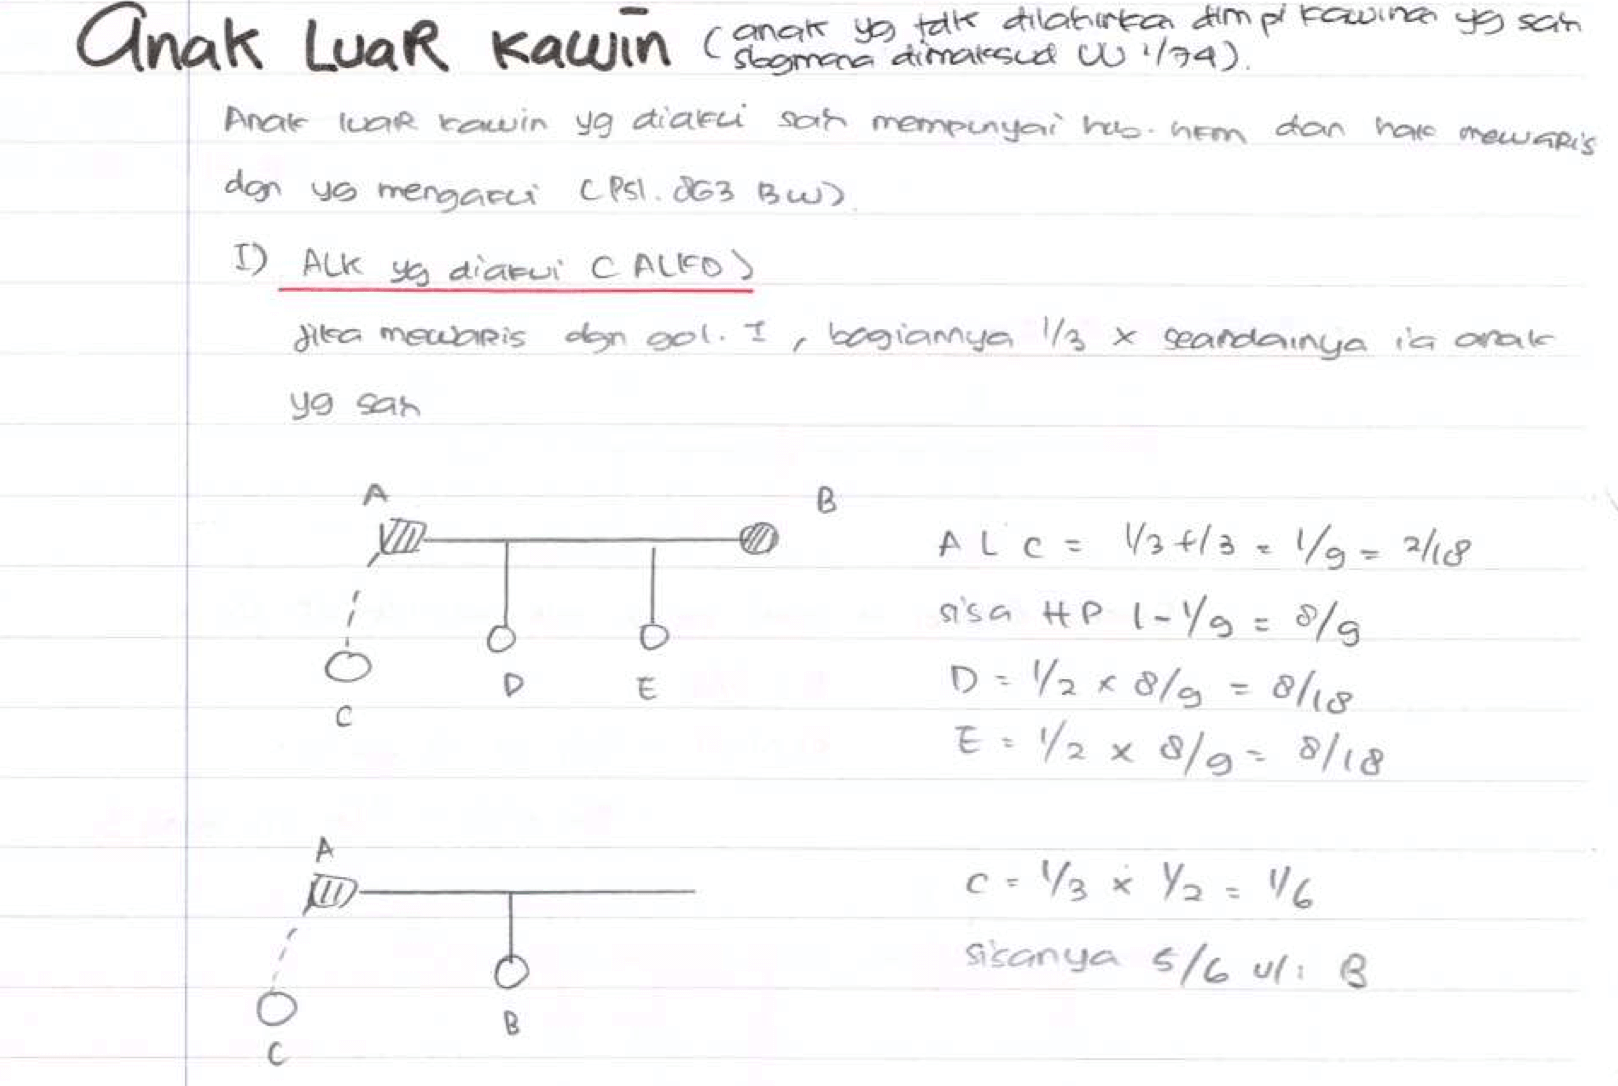 Anak Luar Kawin (anak yg tdk dilahirkan dlm p'kawinan yg sah
sbgmana dimaksud UU 1/74).
Anak luar kawin yg diakui sah mempunyai hub. hkm dan hak mewaris
dgn yg mengakui (Psl. 863 BW)
I) ALK yg diakui (ALKD)
Jika mewaris dgn gol. I, bagiannya 1/3 x seandainya ia anak
yg sah
A B
ALC = 1/3 + 1/3 = 1/9 = 2/18
sisa HP 1 - 1/9 = 8/9
D = 1/2 x 8/9 = 8/18
D E
C
E = 1/2 x 8/9 = 8/18
A
C = 1/3 x 1/2 = 1/6
sisanya 5/6 u/: B
B
C